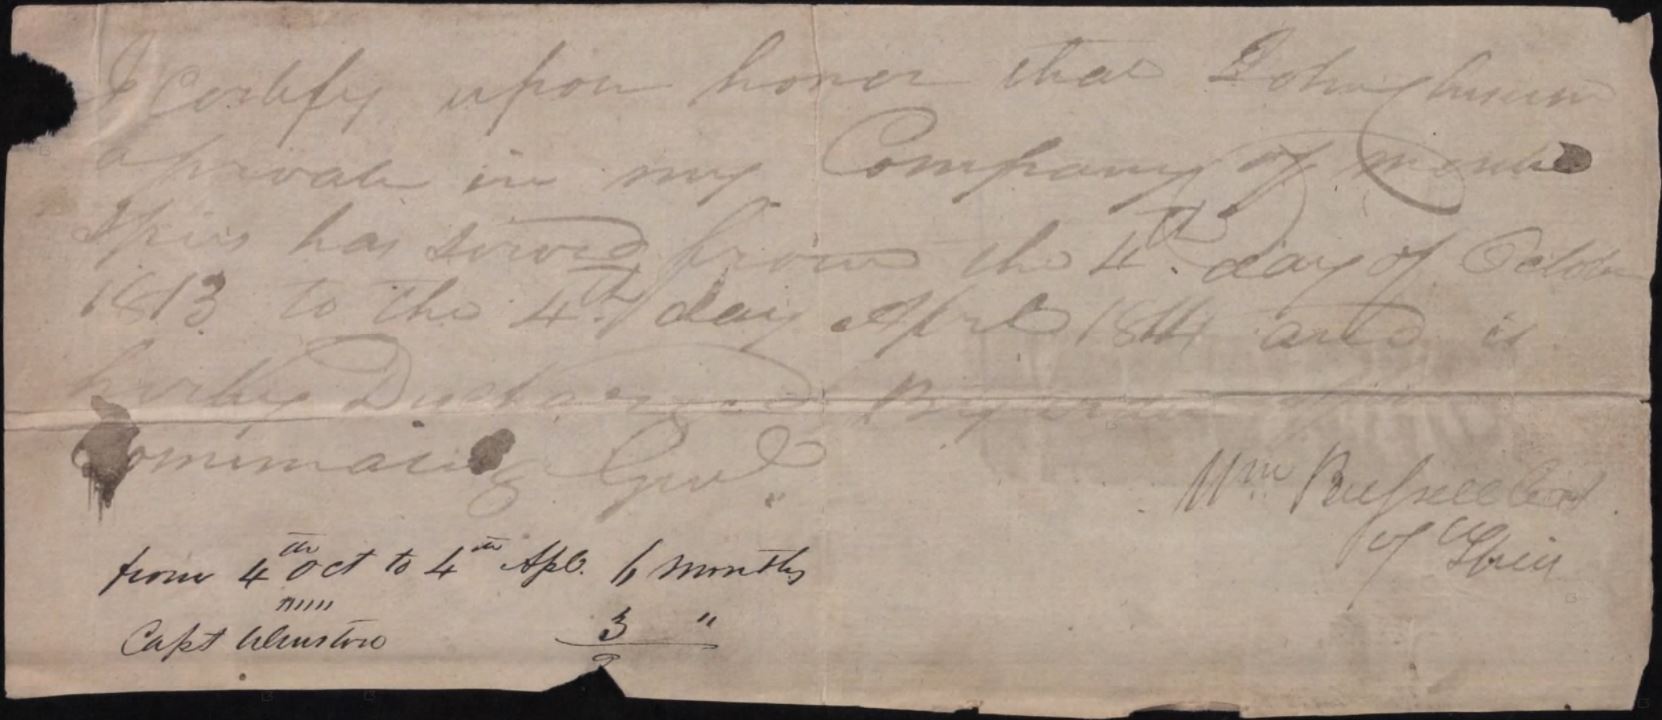 I Certify upon honor that John
a private in my Company of mounted
Spies has served from the 4th day of October
1813 to the 4th day Aprl 1814 and is
hereby Discharged By order of the
Commanding Genl
Wm Russell Capt
of Spies
from 4th Oct to 4th Apl. 6 months
Capt Winston 3 "
9